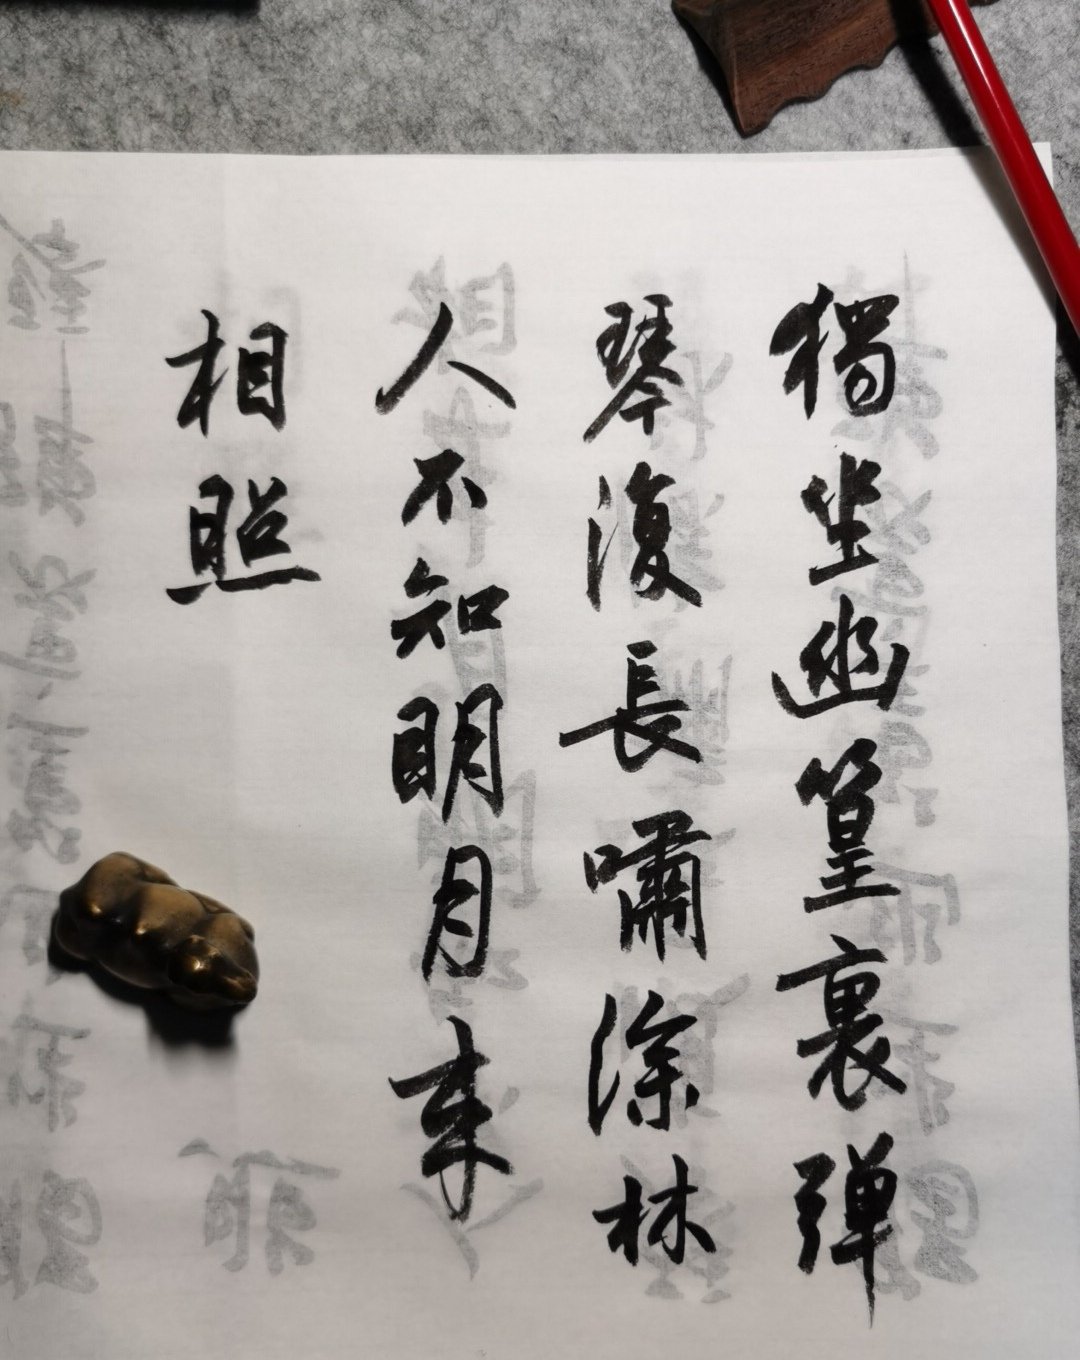 獨坐幽篁裏彈
琴復長嘯深林
人不知明月来
相照